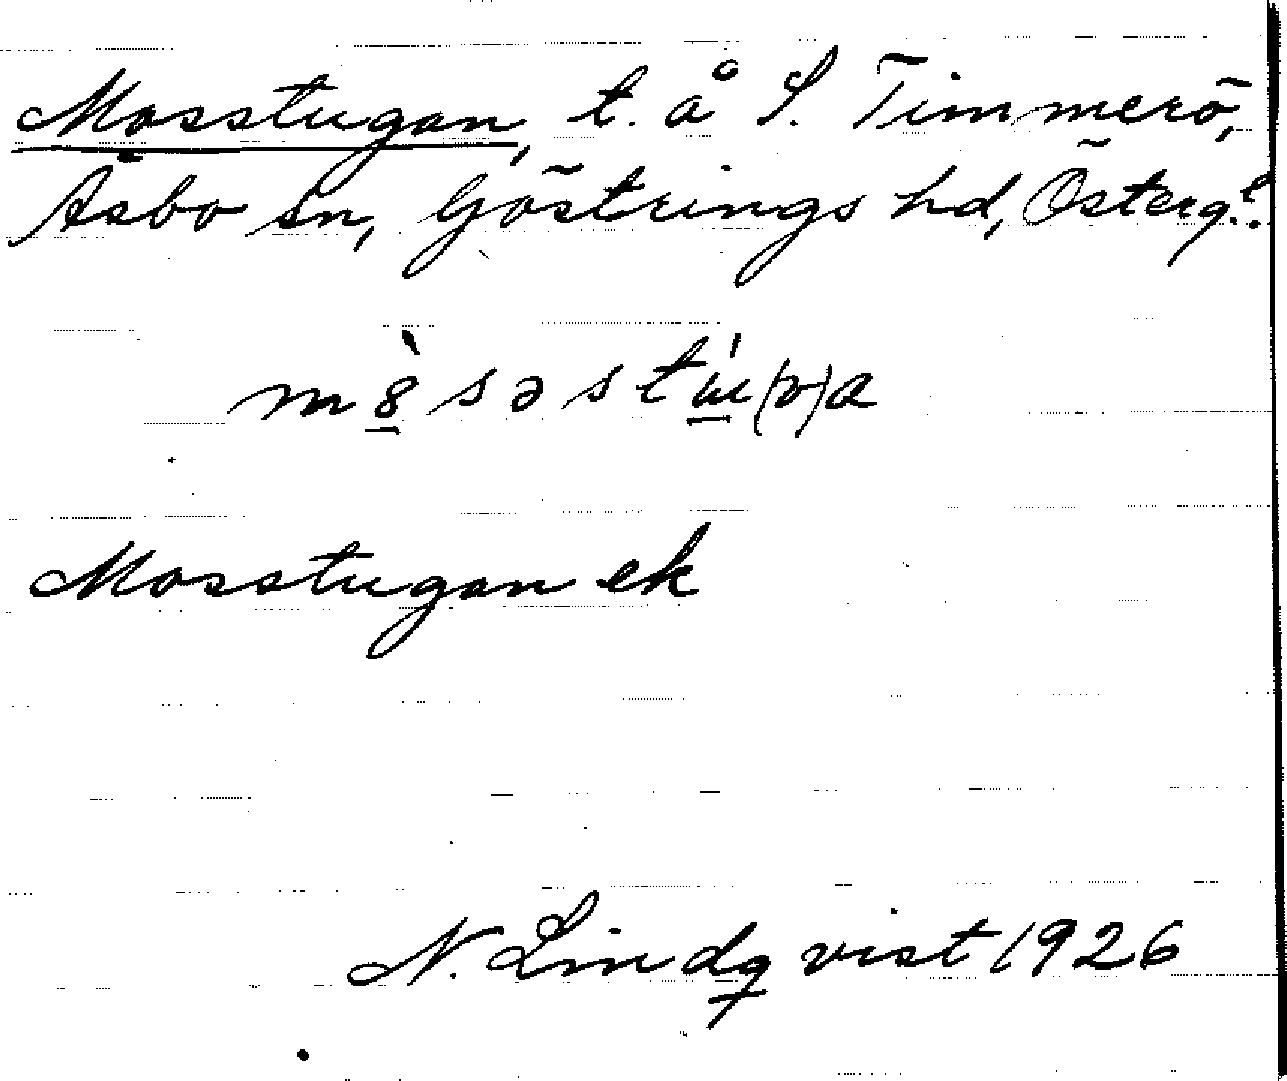 Mosstugan, t. å S. Timmerö,
Åsbo sn, Göstrings hd, Österg.?
Mosstugan ek
N. Lindqvist 1926